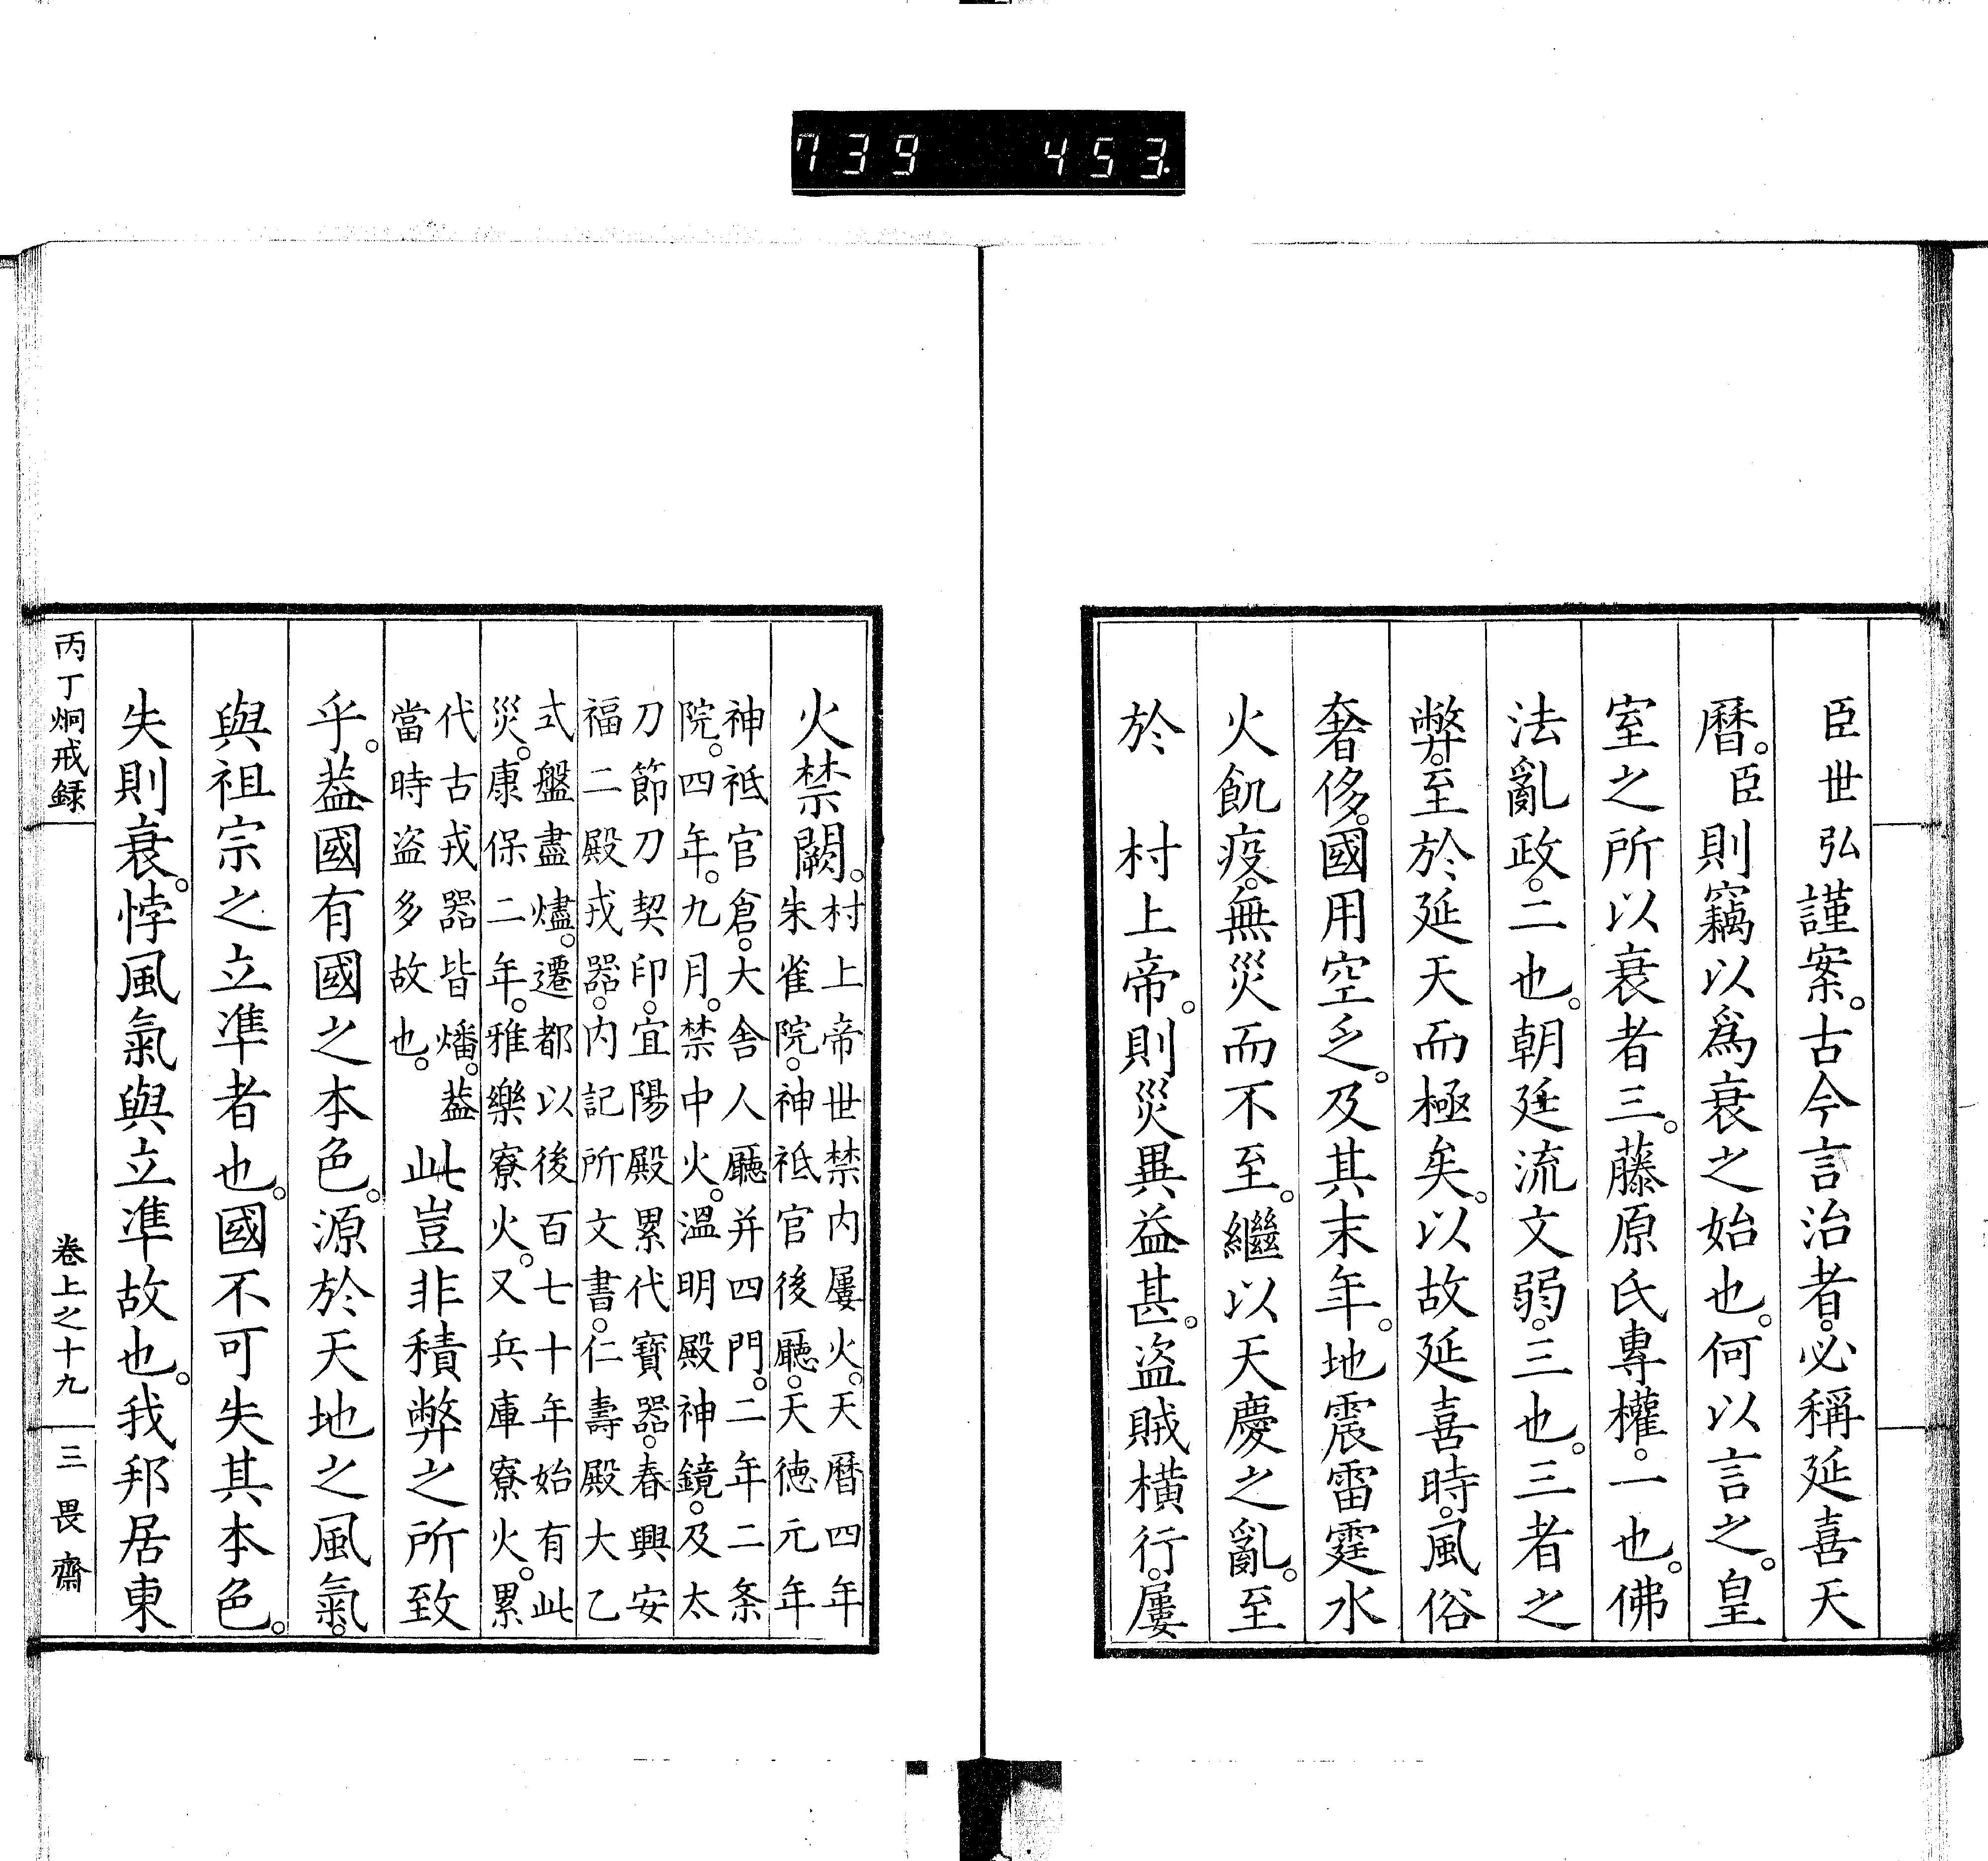 739 453.
臣世弘謹案。古今言治者。必稱延喜天
曆。臣則竊以爲衰之始也。何以言之。皇
室之所以衰者三。藤原氏專權。一也。佛
法亂政。二也。朝廷流文弱。三也。三者之
弊。至於延天而極矣。以故延喜時。風俗
奢侈。國用空乏。及其末年。地震雷霆水
火飢疫。無災而不至。繼以天慶之亂。至
於　村上帝。則災異益甚。盗賊橫行。屢
火禁闕。
村上帝世禁内屢火。天曆四年
朱雀院。神祇官後廳。天德元年
神祇官倉。大舍人廳并四門。二年二条
院。四年。九月。禁中火。溫明殿神鏡。及太
刀節刀契印。宜陽殿累代寶器。春興安
福二殿戎器。内記所文書。仁壽殿大乙
式盤盡燼。遷都以後百七十年始有此
災。康保二年。雅樂寮火。又兵庫寮火。累
代古戎器皆燔。葢
當時盗多故也。
此豈非積弊之所致
乎。葢國有國之本色。源於天地之風氣。
與祖宗之立準者也。國不可失其本色。
失則衰。悖風氣與立準故也。我邦居東
丙丁炯戒録
卷上之十九
三畏齋